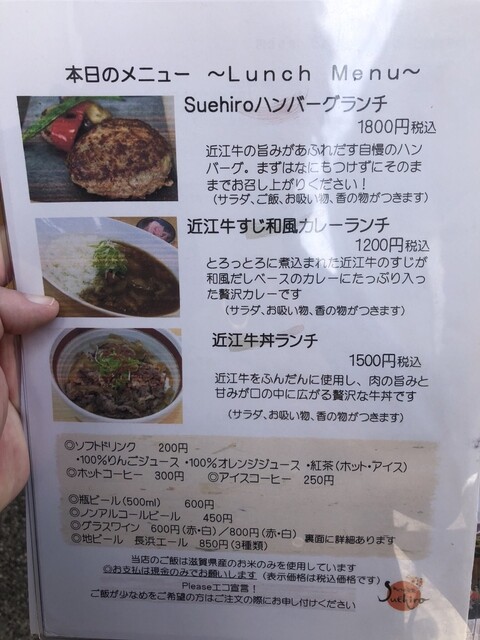 本日のメニュー ～Lunch Menu～
Suehiroハンバーグランチ
1800円税込
近江牛の旨みがあふれだす自慢のハン
バーグ。まずはなにもつけずにそのま
までお召し上がりください！
(サラダ、ご飯、お吸い物、香の物がつきます)
近江牛すじ和風カレーランチ
1200円税込
とろっとろに煮込まれた近江牛のすじが
和風だしベースのカレーにたっぷり入っ
た贅沢カレーです
(サラダ、お吸い物、香の物がつきます)
近江牛丼ランチ
1500円税込
近江牛をふんだんに使用し、肉の旨みと
甘みが口の中に広がる贅沢な牛丼です
(サラダ、お吸い物、香の物がつきます)
◎ソフトドリンク 200円
・100%りんごジュース ・100%オレンジジュース ・紅茶(ホット・アイス)
◎ホットコーヒー 300円 ◎アイスコーヒー 250円
◎瓶ビール(500ml) 600円
◎ノンアルコールビール 450円
◎グラスワイン 600円(赤・白)/800円(赤・白)
◎地ビール 長浜エール 850円(3種類) 裏面に詳細あります
当店のご飯は滋賀県産のお米のみを使用しています
◎お支払は現金のみでお願いします(表示価格は税込価格です)
Pleaseエコ宣言！
ご飯が少なめをご希望の方はご注文の際にお申し付けください
Suehiro